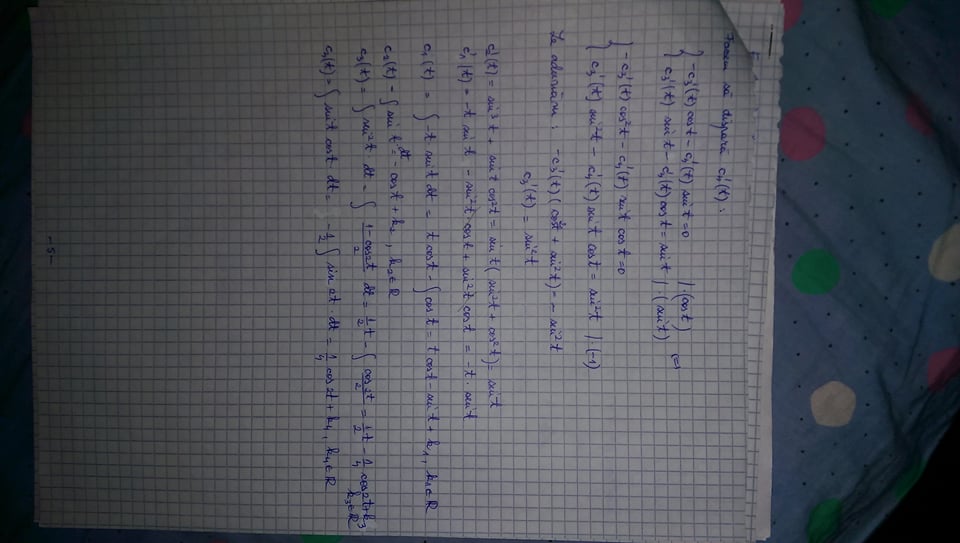 Facem să dispară c₄'(t) :
{ -c₃'(t) cos t - c₄'(t) sin t = 0 | ·(cos t)
{ c₃'(t) sin t - c₄'(t) cos t = sin t | ·(sin t) (=)
{ -c₃'(t) cos²t - c₄'(t) sin t cos t = 0
{ c₃'(t) sin²t - c₄'(t) sin t cos t = sin²t | ·(-1)
Le adunăm : -c₃'(t) (cos²t + sin²t) = - sin²t
c₃'(t) = sin²t
c₂'(t) = sin³t + sin t cos²t = sin t (sin²t + cos²t) = sin t
c₁'(t) = -t sin t - sin²t cos t + sin²t cos t = -t · sin t
c₁(t) = ∫ -t · sin t dt = t cos t - ∫ cos t = t cos t - sin t + k₁, k₁∈ℝ
c₂(t) = ∫ sin t dt = - cos t + k₂, k₂∈ℝ
c₃(t) = ∫ sin²t · dt = ∫ (1-cos2t)/2 dt = 1/2 t - ∫ cos2t/2 = 1/2 t - 1/4 cos2t + k₃
k₃∈ℝ
c₄(t) = ∫ sin t cos t dt = - 1/2 ∫ sin 2t · dt = 1/4 cos 2t + k₄, k₄∈ℝ
-5-